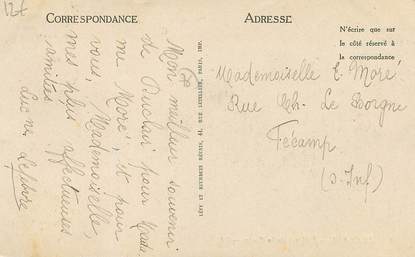 12€
CORRESPONDANCE
Mon meilleur souvenir
de Duclair pour Mada
me Moré, et pour
vous, Mademoiselle,
mes plus affectueuses
amitiés
Lefebvre
LÉVY ET NEURDEIN RÉUNIS, 44, RUE LETELLIER, PARIS, IMP.
ADRESSE
N'écrire que sur
le côté réservé à
la correspondance
Mademoiselle E. Moré
Rue Ch. Le Borgne
Fécamp
(S. Inf)